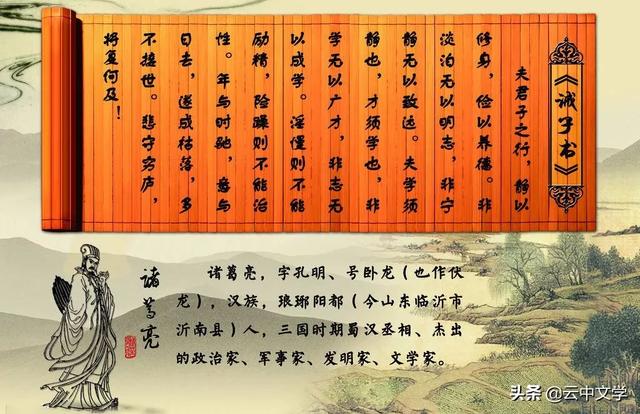 《诫子书》
夫君子之行，静以
修身，俭以养德。非
淡泊无以明志，非宁
静无以致远。夫学须
静也，才须学也，非
学无以广才，非志无
以成学。淫慢则不能
励精，险躁则不能治
性。年与时驰，意与
日去，遂成枯落，多
不接世。悲守穷庐，
将复何及！
诸葛亮
诸葛亮，字孔明、号卧龙（也作伏
龙），汉族，琅琊阳都（今山东临沂市
沂南县）人，三国时期蜀汉丞相、杰出
的政治家、军事家、发明家、文学家。
头条 @云中文学